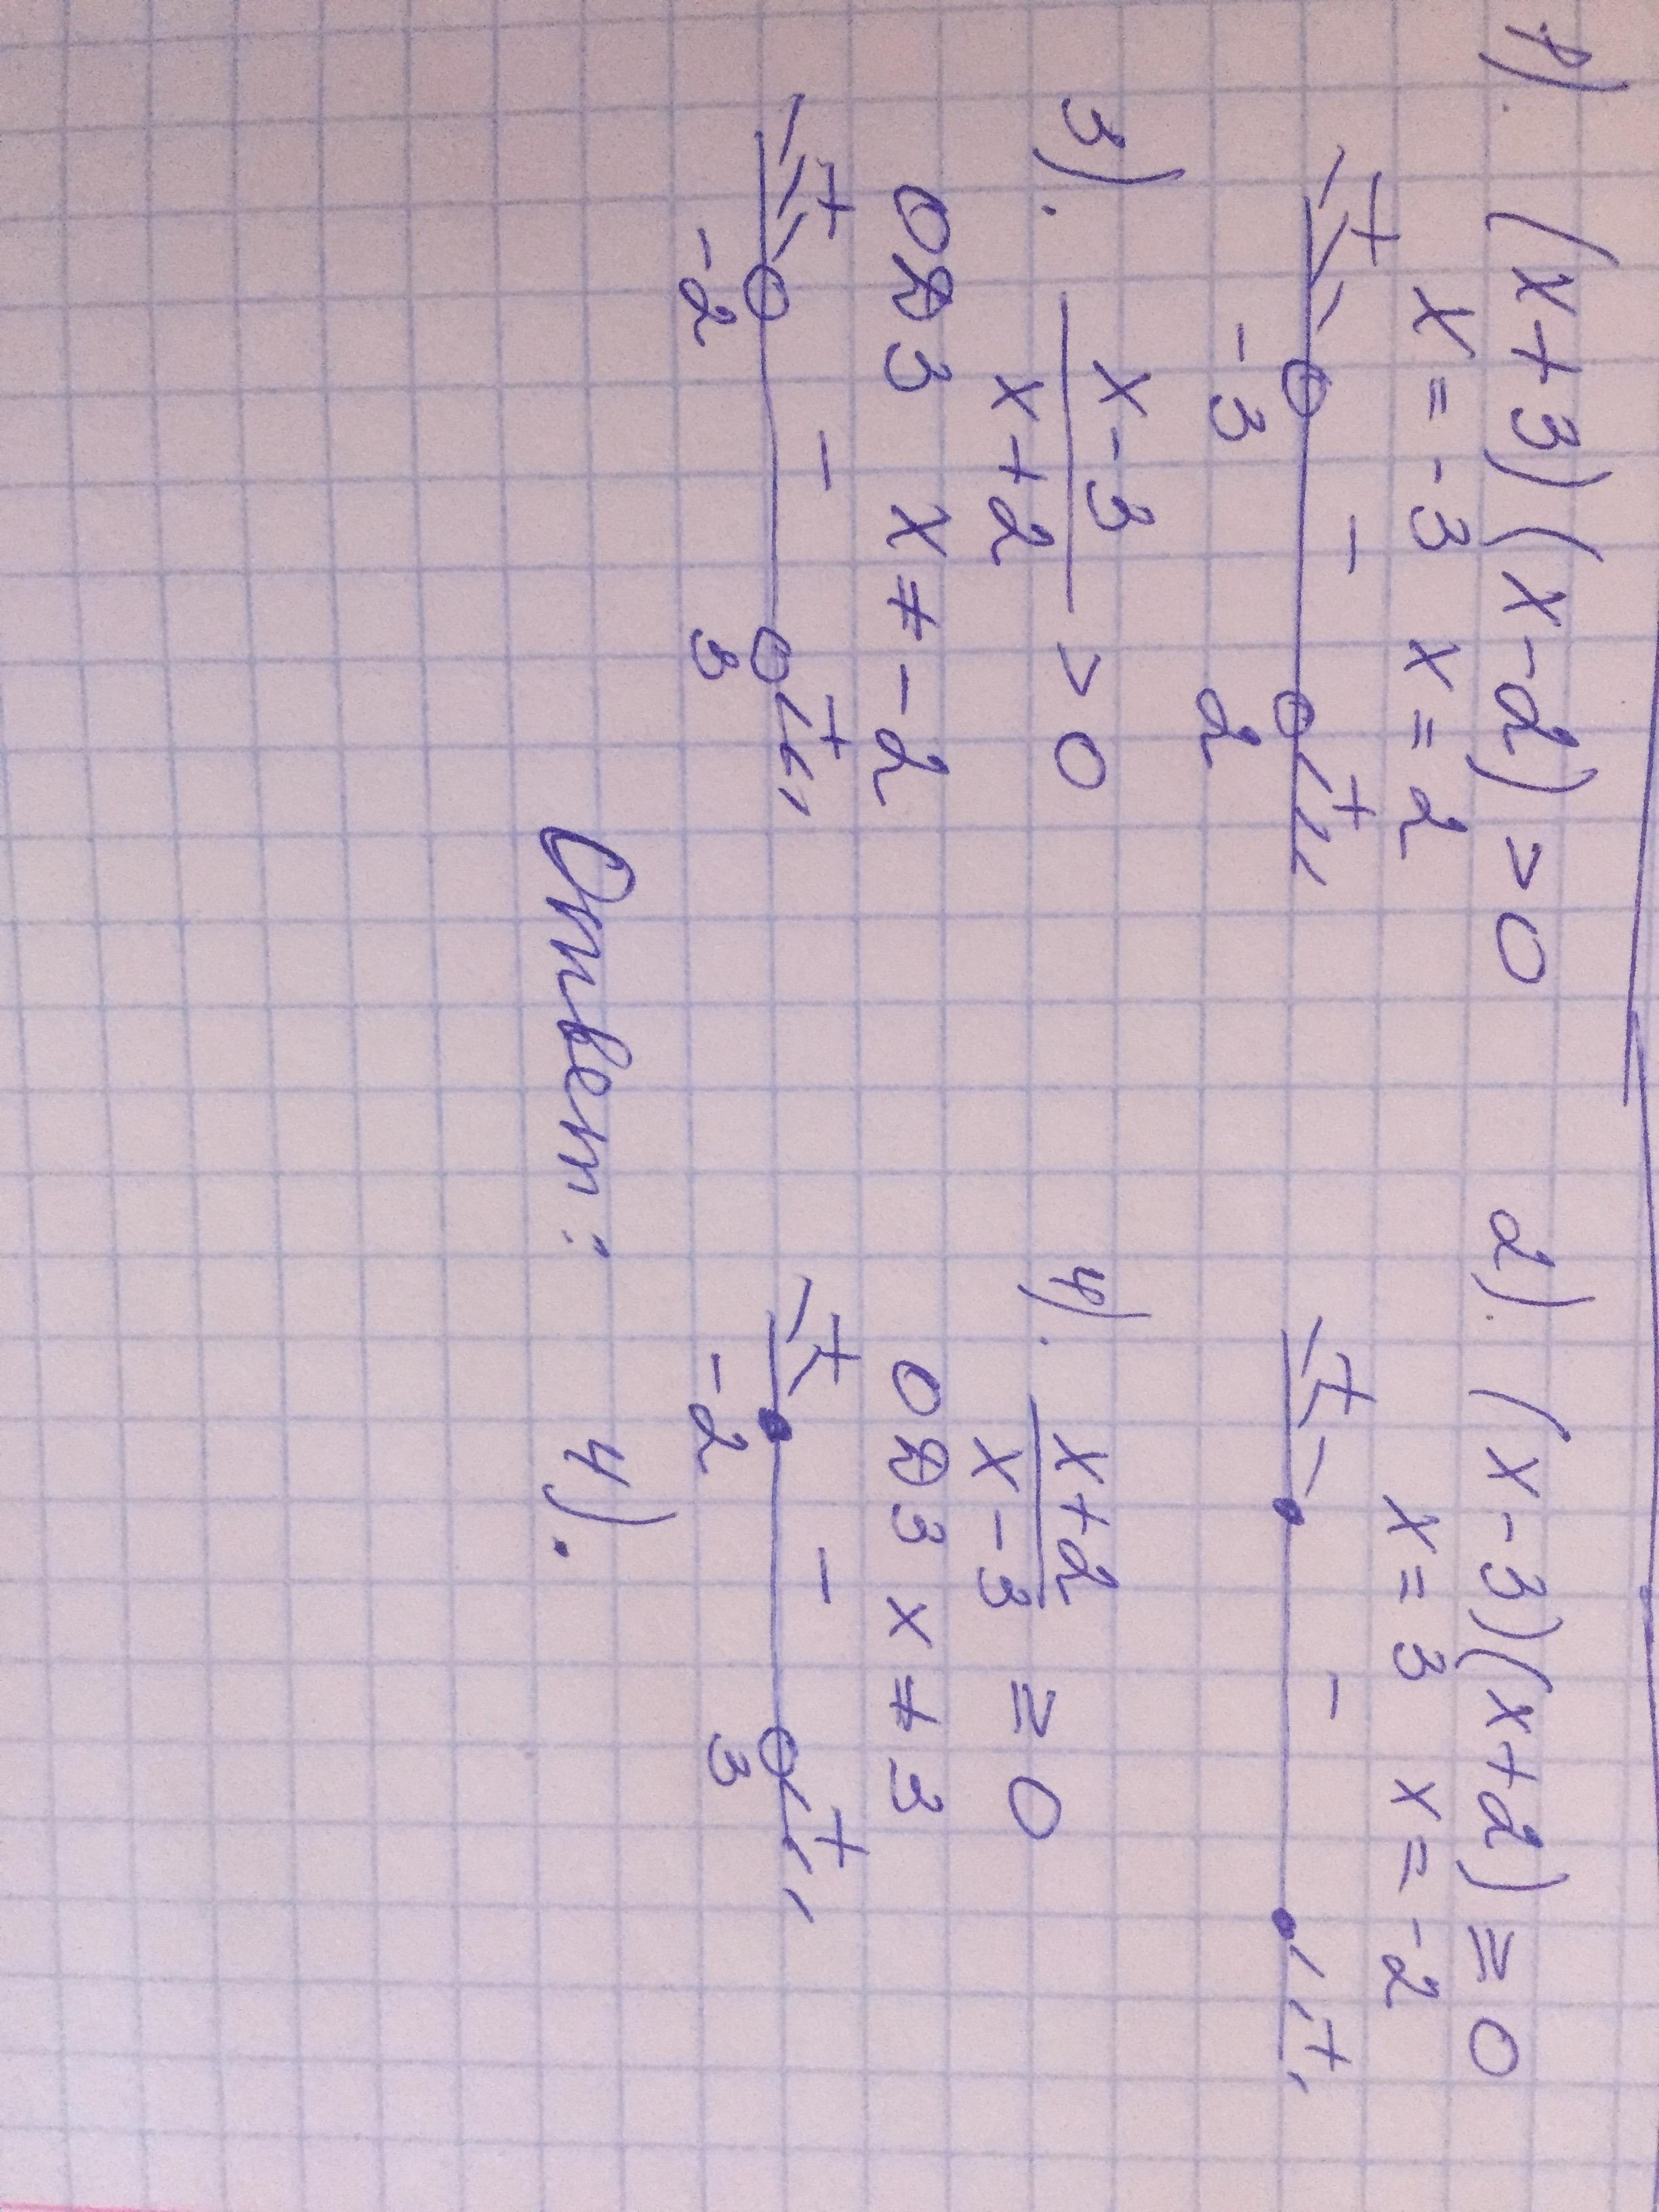 1). (x+3)(x-2)>0
x=-3 x=2
+ - +
-3 2
2). (x-3)(x+2)⩾0
x=3 x=-2
+ - +
3). x-3
x+2 >0
ОДЗ x≠-2
+ - +
-2 3
4). x+2
x-3 ⩾0
ОДЗ x≠3
+ - +
-2 3
Ответ: 4).